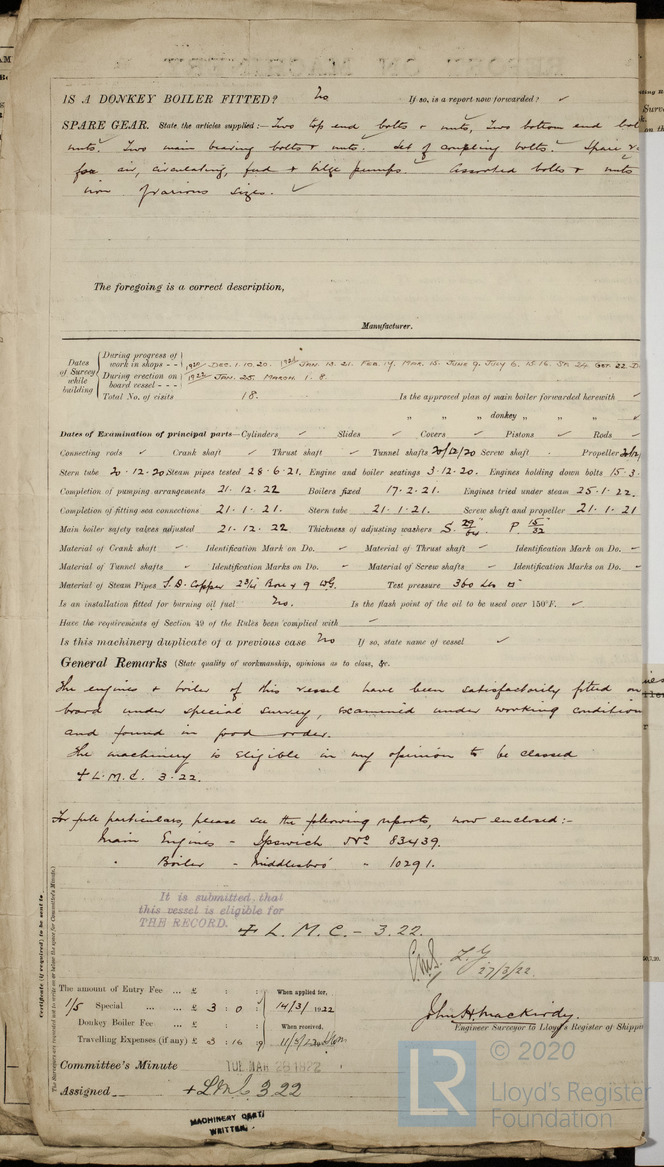 IS A DONKEY BOILER FITTED? No If so, is a report now forwarded? ✓
SPARE GEAR. State the articles supplied:— Two top end bolts & nuts, Two bottom end bol
nuts. Two main bearing bolts & nuts. Set of coupling bolts. Spare v
for air, circulating, feed & bilge pumps. Assorted bolts & nuts
iron of various sizes. ✓
The foregoing is a correct description,
Manufacturer.
Dates of Survey while building
During progress of work in shops - - 1920 DEC. 1. 10. 20. 1921 JAN. 13. 21. FEB. 17. MAR. 15. JUNE 9. JULY 6. 15. 16. 24. OCT. 22. D
During erection on board vessel - - - 1922 JAN. 25. MARCH. 1. 8.
Total No. of visits 18. Is the approved plan of main boiler forwarded herewith ✓
" " " donkey " " " ✓
Dates of Examination of principal parts—Cylinders ✓ Slides ✓ Covers ✓ Pistons ✓ Rods ✓
Connecting rods ✓ Crank shaft ✓ Thrust shaft ✓ Tunnel shafts 20/12/20 Screw shaft Propeller
Stern tube 20.12.20 Steam pipes tested 28.6.21. Engine and boiler seatings 3.12.20. Engines holding down bolts 15.3.
Completion of pumping arrangements 21.12.22 Boilers fixed 17.2.21. Engines tried under steam 25.1.22.
Completion of fitting sea connections 21.1.21. Stern tube 21.1.21. Screw shaft and propeller 21.1.21
Main boiler safety valves adjusted 21.12.22 Thickness of adjusting washers S. 29/64" P. 15/32"
Material of Crank shaft ✓ Identification Mark on Do. ✓ Material of Thrust shaft ✓ Identification Mark on Do. ✓
Material of Tunnel shafts ✓ Identification Marks on Do. ✓ Material of Screw shafts ✓ Identification Marks on Do. ✓
Material of Steam Pipes S.D. Copper 2¾ Bore × 9 WG. Test pressure 360 lbs □"
Is an installation fitted for burning oil fuel No. Is the flash point of the oil to be used over 150°F. ✓
Have the requirements of Section 49 of the Rules been complied with ✓
Is this machinery duplicate of a previous case No If so, state name of vessel ✓
General Remarks (State quality of workmanship, opinions as to class, &c.
The engines & boiler of this vessel have been satisfactorily fitted on
board under special survey, examined under working condition
and found in good order.
The machinery is eligible in my opinion to be classed
+ L.M.C. 3.22.
For full particulars, please see the following reports, now enclosed:-
Main Engines - Ipswich No 83439.
" Boiler - Middlesbro' " 10291.
It is submitted that
this vessel is eligible for
THE RECORD. + L. M. C. - 3.22.
27/3/22.
Certificate (if required) to be sent to
The Surveyors are requested not to write on or below the space for Committee's Minute.)
The amount of Entry Fee ... £ : : When applied for,
1/5 Special ... ... £ 3 : 0 : 14/3/1922
Donkey Boiler Fee ... £ : : When received,
Travelling Expenses (if any) £ 3 : 16 : 9
John H. Mackirdy.
Engineer Surveyor to Lloyd's Register of Shippi
Committee's Minute TUE. MAR 28 1922
Assigned + LMC 3.22
MACHINERY CERT.
WRITTEN.
© 2020
LR
Lloyd's Register
Foundation